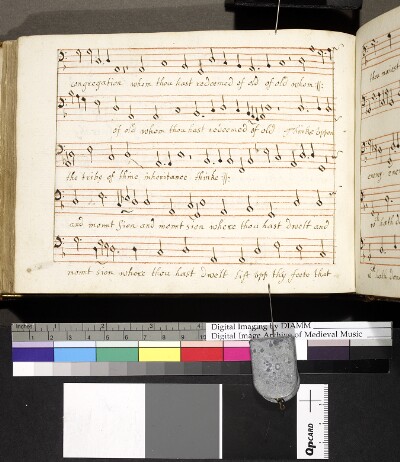 congregation whom thou hast redeemed of old of old whom :||:
of old whom thou hast redeemed of old Thinke uppon
the tribe of thine inheritance thinke :||:
and mount Sion and mount sion where thou hast dwelt and
mount sion where thou hast dwelt lift upp thy feete that
thou
Digital Imaging by DIAMM
Digital Image Archive of Medieval Music
QPCARD